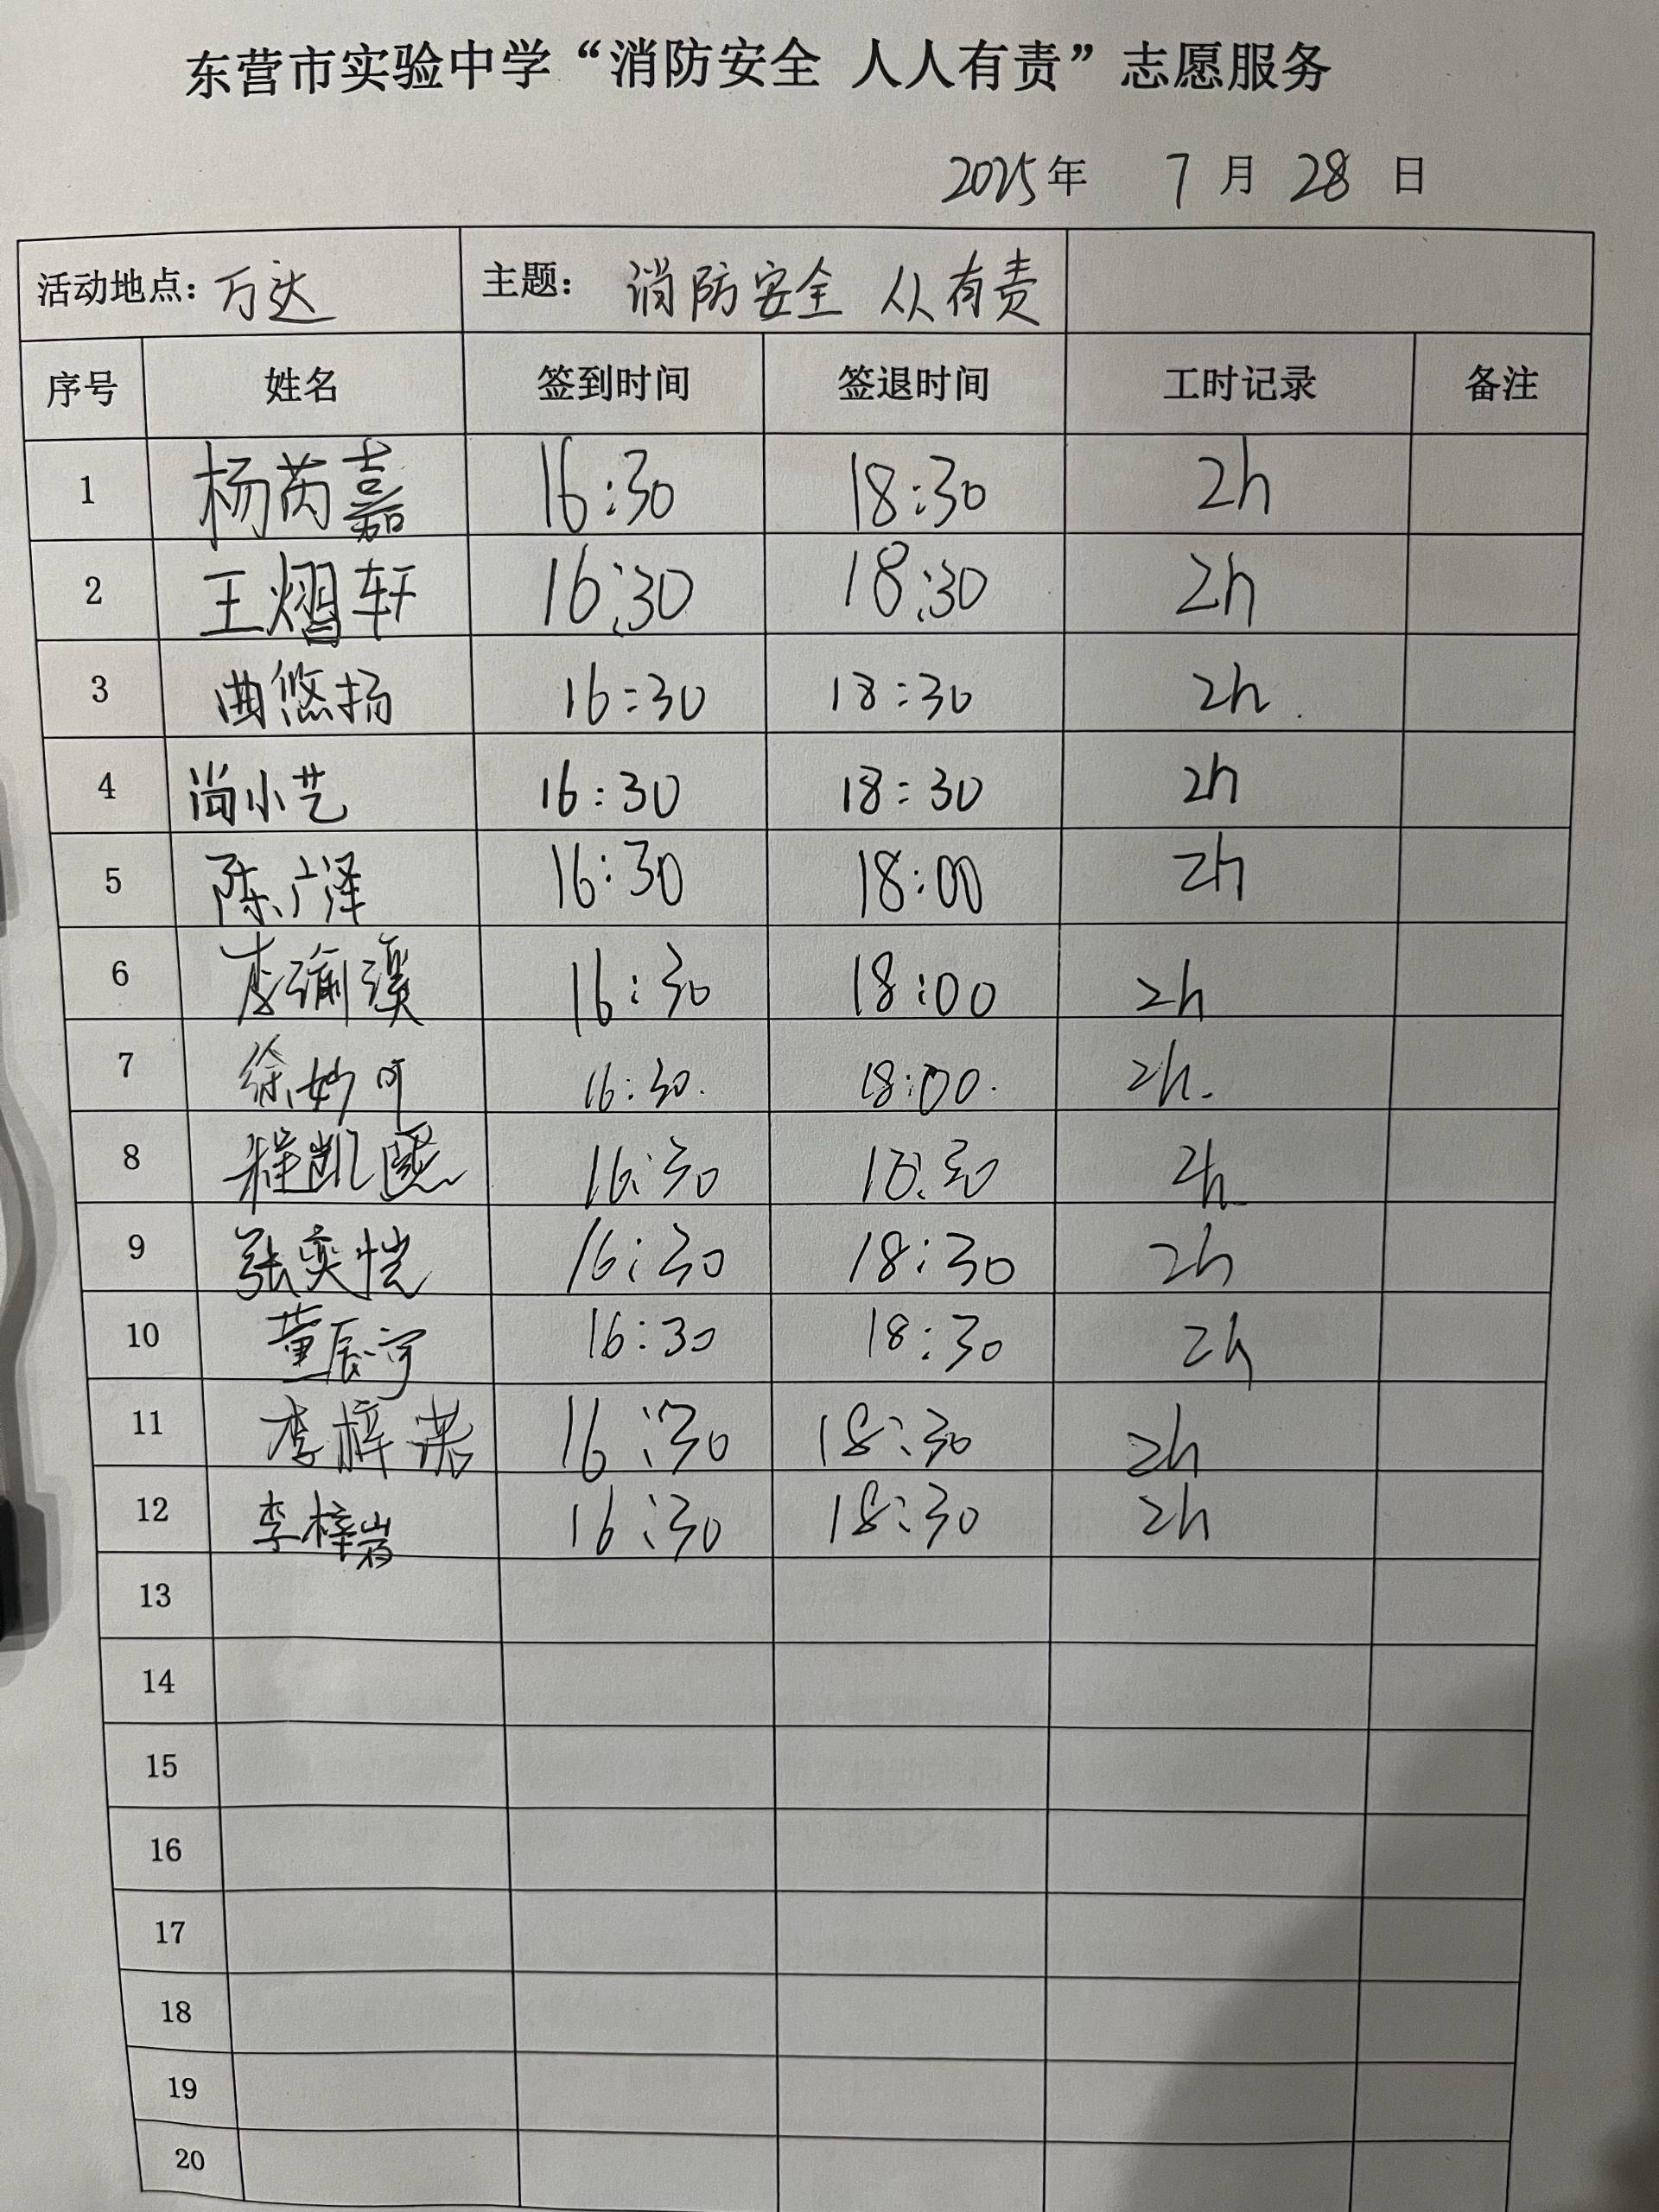 东营市实验中学“消防安全 人人有责”志愿服务
2025年 7月28日
活动地点：万达 主题： 消防安全 人人有责
序号 姓名 签到时间 签退时间 工时记录 备注
1 杨芮嘉 16:30 18:30 2h
2 王熠轩 16:30 18:30 2h
3 曲悠扬 16:30 18:30 2h.
4 尚小艺 16:30 18:30 2h
5 陈广泽 16:30 18:00 2h
6 李瑜溪 16:30 18:00 2h
7 徐妙可 16:30. 18:00. 2h.
8 程凯 16:30 18:30 2h
9 张奕恺 16:30 18:30 2h
10 董辰 16:30 18:30 2h
11 李梓诺 16:30 18:30 2h
12 李梓 16:30 18:30 2h
13
14
15
16
17
18
19
20